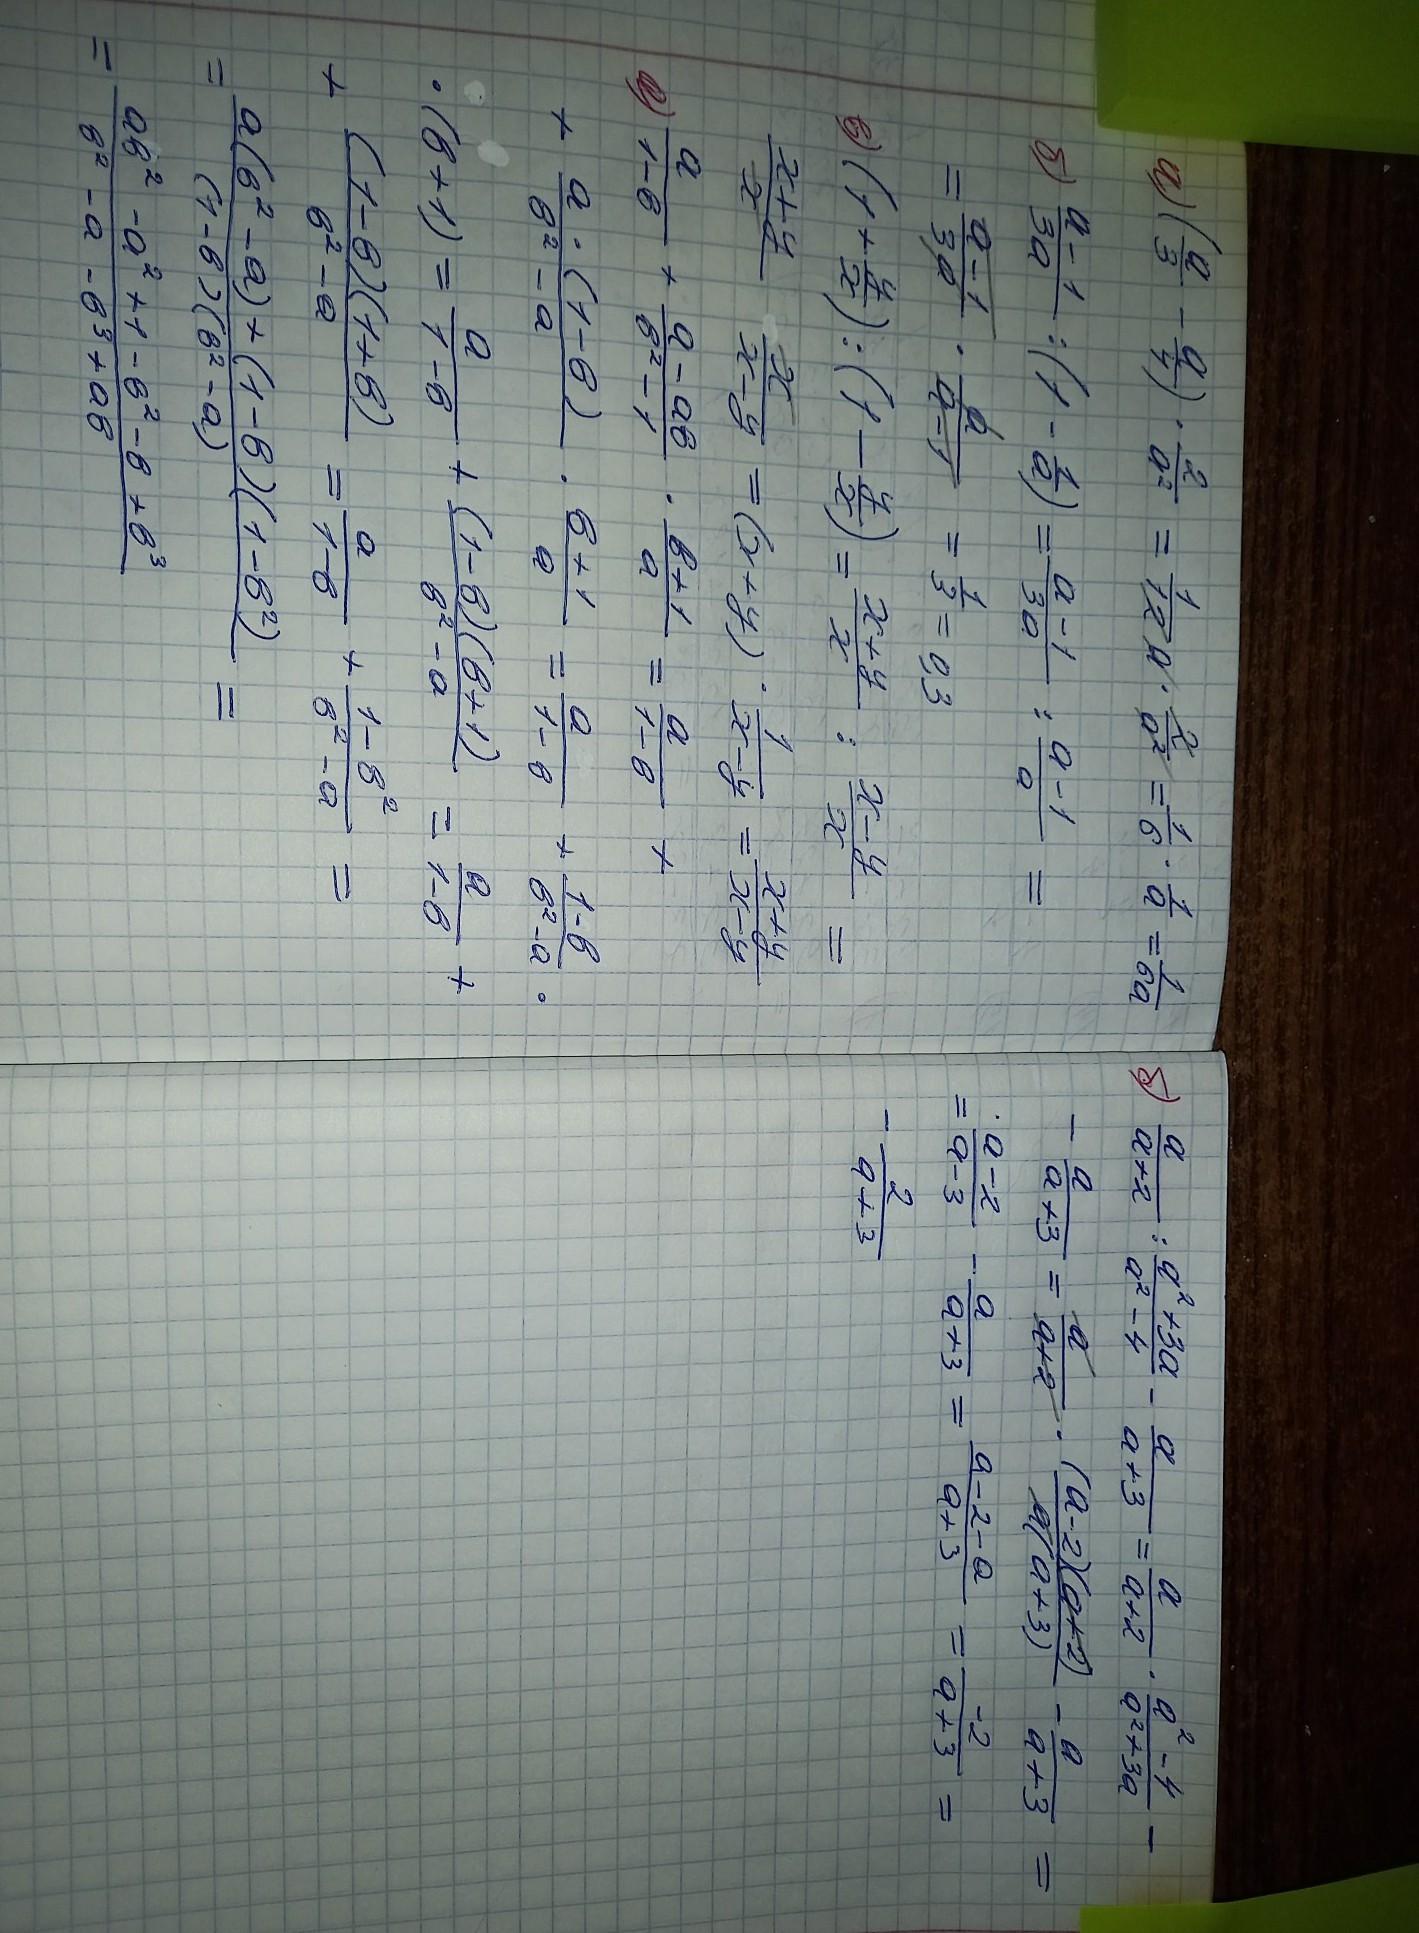 а) (a/3 - a/4) · 2/a² = 1/12 a · 2/a² = 1/6 · 1/a = 1/6a
б) a-1/3a : (1 - 1/a) = a-1/3a : a-1/a =
= a-1/3a · a/a-1 = 1/3 = 0,3
в) (1 + y/x) : (1 - y/x) = x+y/x : x-y/x =
x+y/x x/x-y = (x+y) · 1/x-y = x+y/x-y
a/1-b + a-ab/b²-1 · b+1/a = a/1-b +
+ a·(1-b)/b²-a · b+1/a = a/1-b + 1-b/b²-a ·
· (b+1) = a/1-b + (1-b)(b+1)/b²-a = a/1-b +
+ (1-b)(1+b)/b²-a = a/1-b + 1-b²/b²-a =
= a(b²-a)+(1-b)(1-b²)/(1-b)(b²-a) =
= ab²-a²+1-b²-b+b³/b²-a-b³+ab
б) a/a+2 : a²+3a/a²-4 - a/a+3 = a/a+2 · a²-4/a²+3a -
- a/a+3 = a/a+2 · (a-2)(a+2)/a(a+3) - a/a+3 =
= a-2/a-3 - a/a+3 = a-2-a/a+3 = -2/a+3 =
- 2/a+3